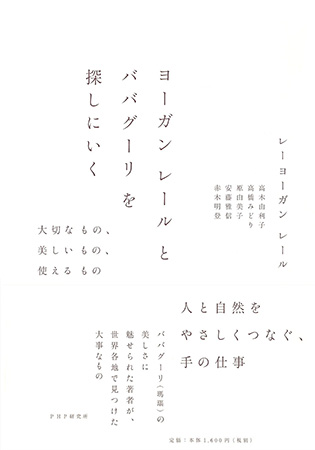 レーヨーガン レール
高木由利子
高橋みどり
原由美子
安藤雅信
赤木明登
ヨーガン レールと
ババグーリを
探しにいく
大切なもの、
美しいもの、
使えるもの
人と自然を
やさしくつなぐ、
手の仕事
ババグーリ(瑪瑙)の
美しさに
魅せられた著者が、
世界各地で見つけた
大事なもの
PHP研究所
定価：本体1,600円(税別)